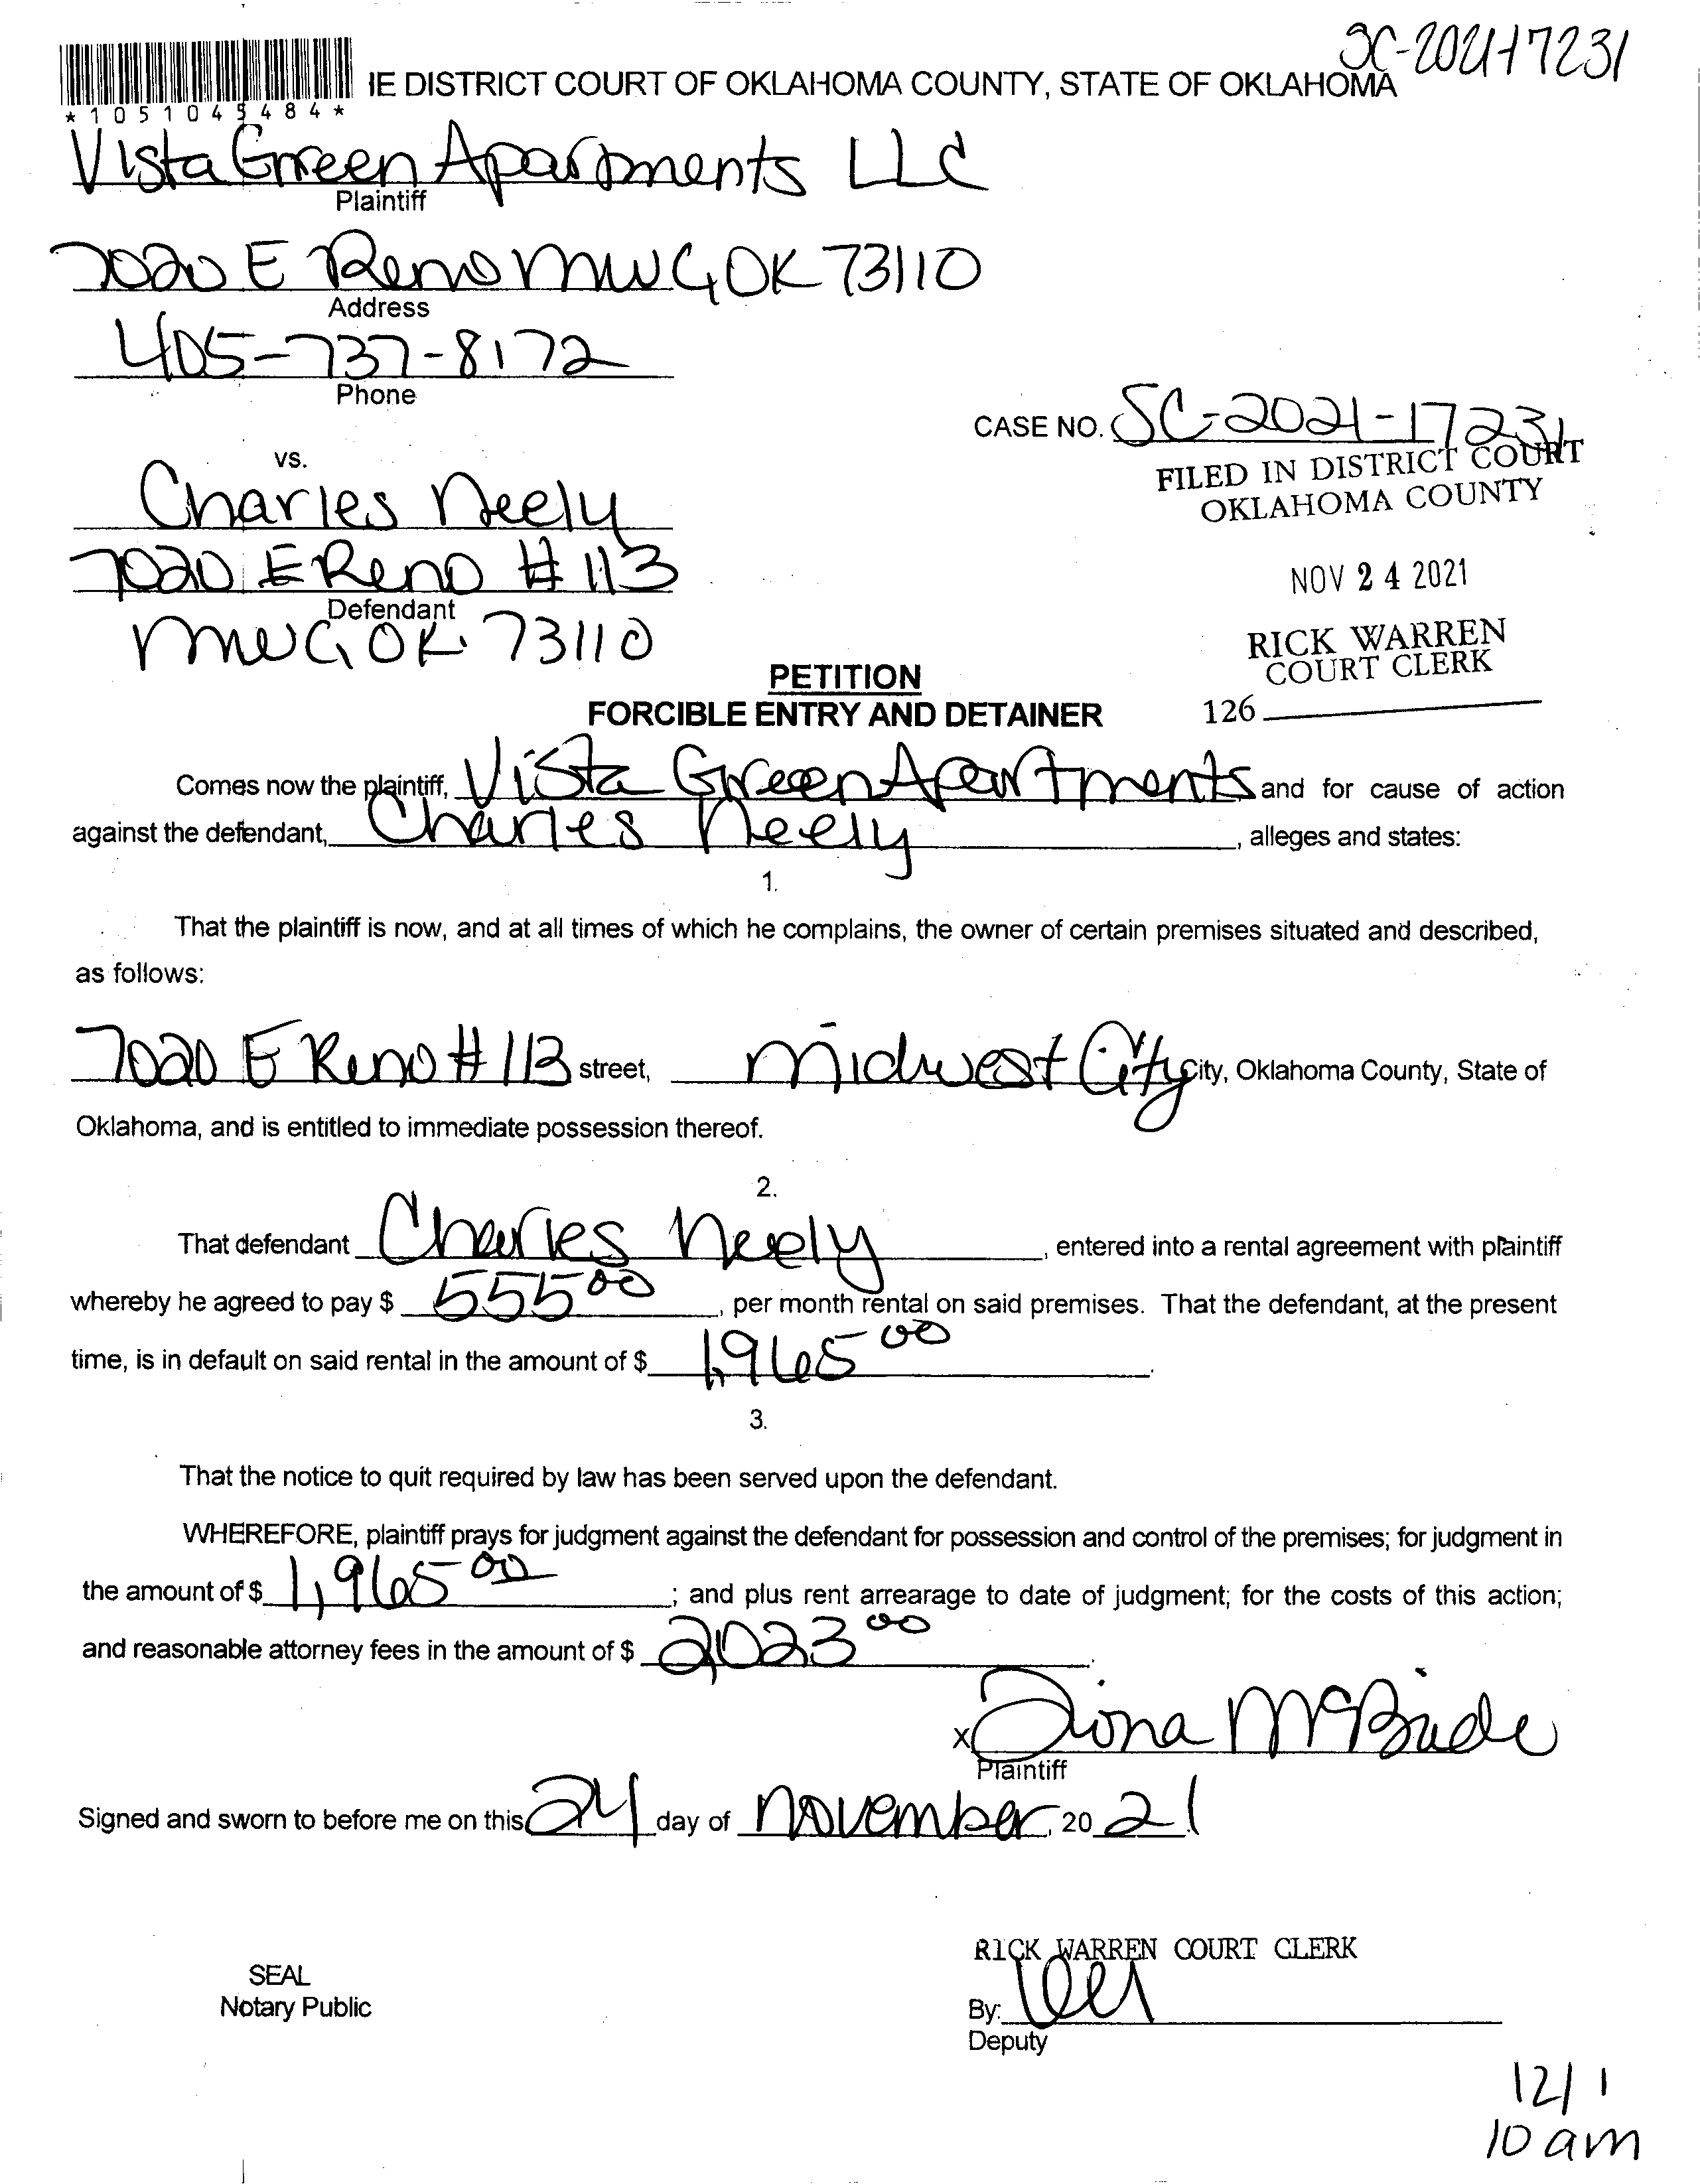 SC-2021-17231
IE DISTRICT COURT OF OKLAHOMA COUNTY, STATE OF OKLAHOMA
*1051045484*
Vista Green Apartments LLC
Plaintiff
7020 E Reno MWC, OK 73110
Address
405-737-8172
Phone
CASE NO. SC-2021-17231
vs.
FILED IN DISTRICT COURT
OKLAHOMA COUNTY
Charles Neely
7020 E Reno # 113
NOV 24 2021
Defendant
MWC, OK 73110
RICK WARREN
COURT CLERK
PETITION
126
FORCIBLE ENTRY AND DETAINER
Comes now the plaintiff, Vista Green Apartments and for cause of action
against the defendant, Charles Neely, alleges and states:
1.
That the plaintiff is now, and at all times of which he complains, the owner of certain premises situated and described,
as follows:
7020 E Reno # 113 street, Midwest City City, Oklahoma County, State of
Oklahoma, and is entitled to immediate possession thereof.
2.
That defendant Charles Neely, entered into a rental agreement with plaintiff
whereby he agreed to pay $ 555 00, per month rental on said premises. That the defendant, at the present
time, is in default on said rental in the amount of $ 1,965 00.
3.
That the notice to quit required by law has been served upon the defendant.
WHEREFORE, plaintiff prays for judgment against the defendant for possession and control of the premises; for judgment in
the amount of $ 1,965 00; and plus rent arrearage to date of judgment; for the costs of this action;
and reasonable attorney fees in the amount of $ 2,023 00.
x Diona McBride
Plaintiff
Signed and sworn to before me on this 24 day of November, 20 21
RICK WARREN COURT CLERK
SEAL
Notary Public
By:
Deputy
12/1
10 am